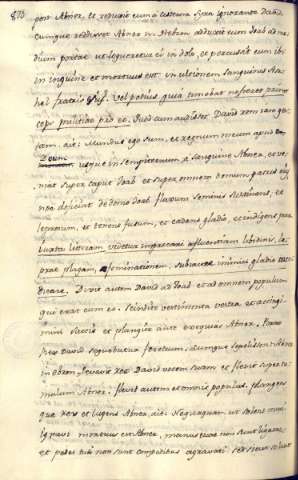 post Abner, et reduxit eum a cisterna Syra ignorante David
cumque rediisset Abner in Hebron adduxit eum Joab ad me
dium portae ut loqueretur ei in dolo, et percussit eum ibi
in inguine et mortuus est in ultionem sanguinis Asa
hel fratris ejus. Vel potius quia timebat ne fieret
militiae pro eo. Quod cum audisset David rem jam ges
tam, ait: Mundus ego sum, et regnum meum apud
Deum usque in sempiternum a sanguine Abner, et ve
niat super caput Joab et super omnem domum patris ejus
non deficiat de domo Joab fluxum seminis sustinens, et
leprosum, et tenens fusum, et cadens gladio, et indigens pane
libidinis, le
prae plagam, inimici gladio
Dixit autem David ad Joab et ad omnem populum
qui erat cum eo. Scindite vestimenta vestra et accingi
mini saccis et plangite ante exequias Abner, Porro
Rex David sequebatur feretrum, cumque sepelissent Abner
in Hebron, levavit Rex David vocem suam et flevit super tu
mulum Abner. flevit autem et omnis populus. plangens
que Rex et lugens Abner, ait: Nequaquam ut solent
mortuus est Abner, manus tuae non sunt ligatae,
et pedes tui non sunt compedibus agravati sed sicut solent